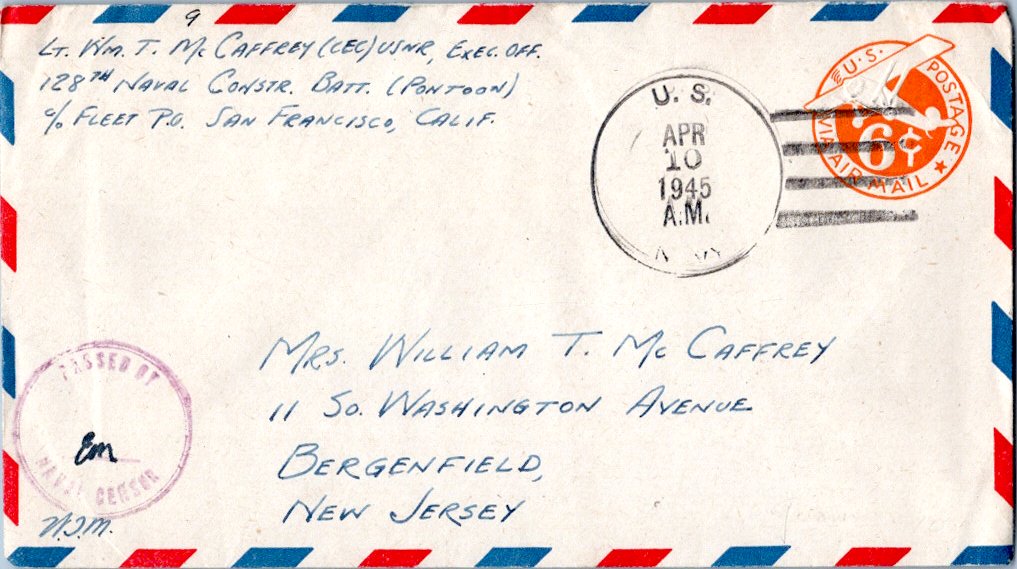 9
Lt. Wm. T. McCaffrey (CEC) USNR, Exec. Off.
128TH Naval Constr. Batt. (Pontoon)
c/o Fleet P.O. San Francisco, Calif.
U. S.
APR
10
1945
A.M.
NAVY
U.S. POSTAGE
6¢
VIA AIR MAIL
Mrs. William T. McCaffrey
11 So. Washington Avenue
Bergenfield,
New Jersey
PASSED BY
Em
NAVAL CENSOR
W.T.M.